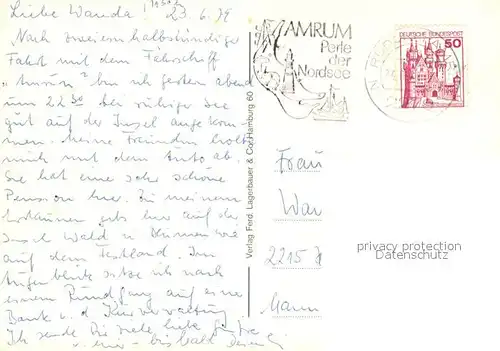 Liebe Wanda! 23.6.79
Nach zweieinhalbstündiger
Fahrt mit dem Fährschiff
bin ich gestern abend
um 22 30 bei ruhiger See
gut auf der Insel angekom-
men. Meine Freundin holte
mich mit dem Auto ab.
Sie hat eine sehr schöne
Pension hier. Zu meinem
Erstaunen gibt es hier auf der
Insel Wald u Blumen wie
auf dem Festland. Im
Augenblick sitze ich nach
einem Rundgang auf eine
Bank v. d Kurverwaltung
Ich sende Dir viele liebe Grüße
bis bald
Verlag Ferd. Lagerbauer & Co., Hamburg 60
AMRUM
Perle
der
Nordsee
DEUTSCHE BUNDESPOST
50
Frau
Wan
2215
Hann
privacy protection
Datenschutz